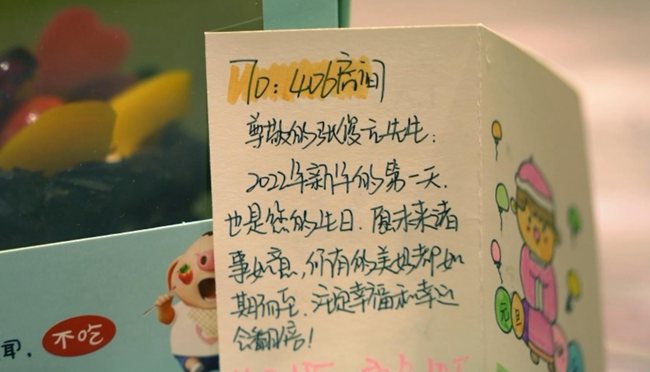 To: 406房间
尊敬的张俊元先生:
2022年新年的第一天.
也是您的生日.愿未来者
事如意,所有的美好都如
期而至.注定幸福和幸运
会翻倍!
元旦
闻, 不吃